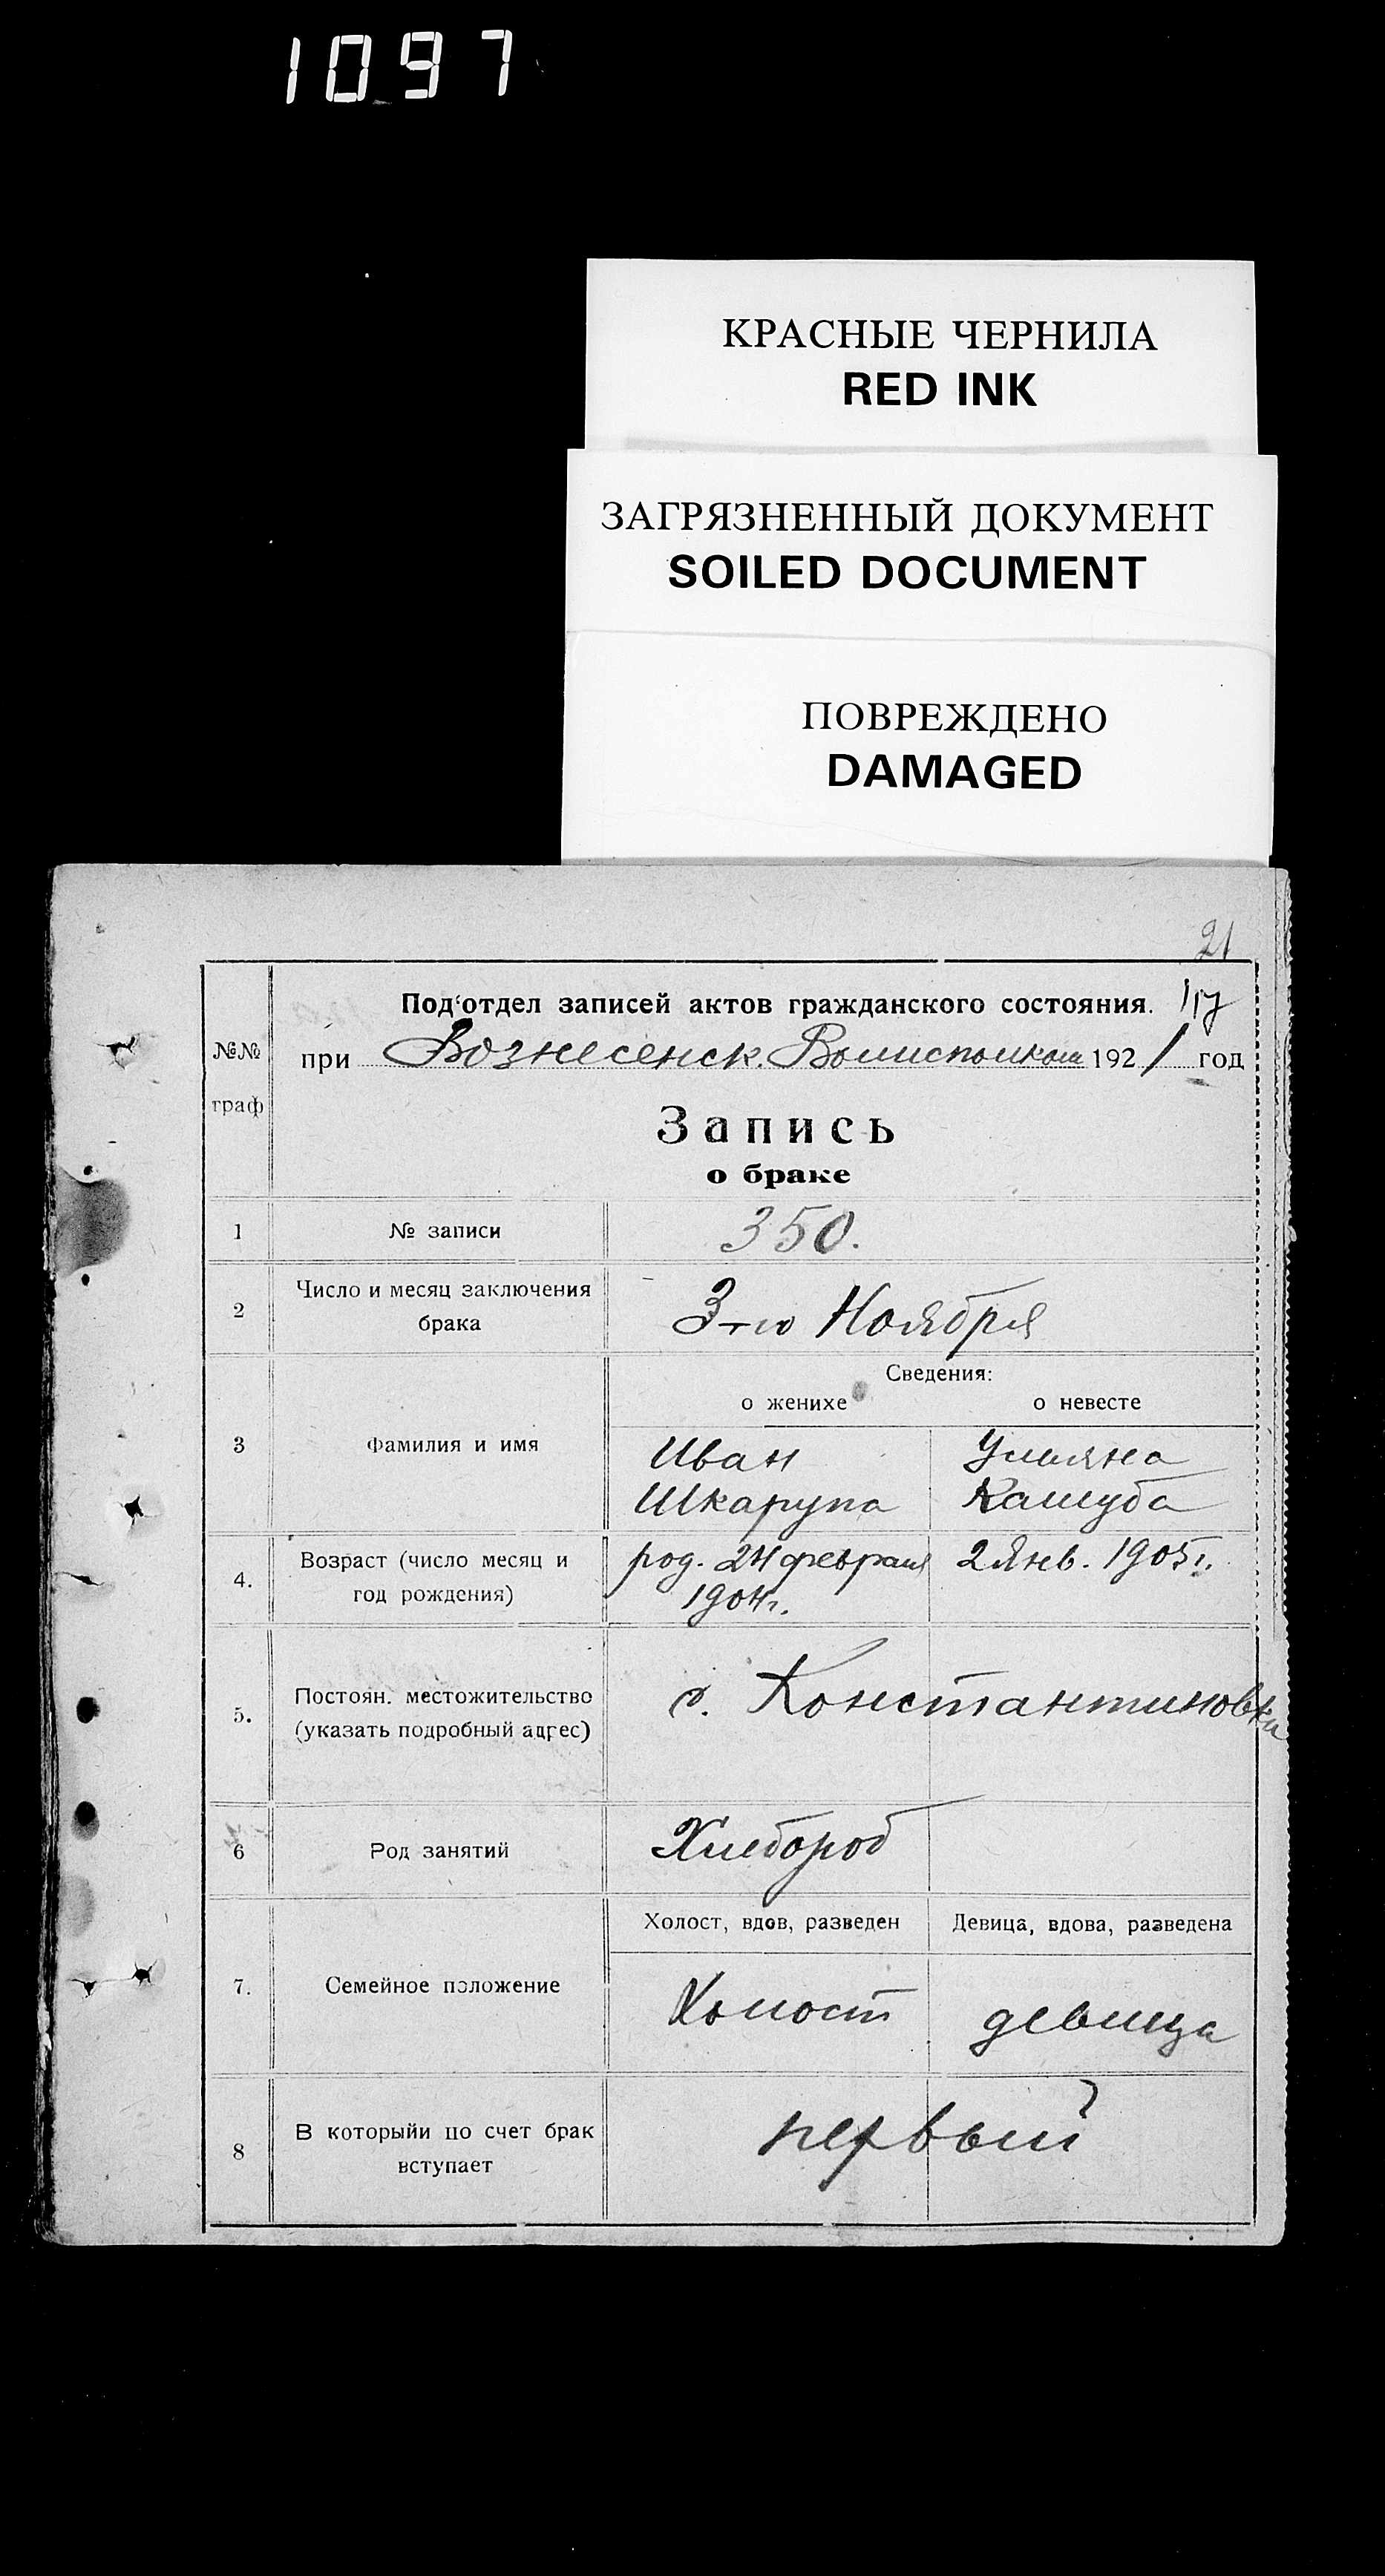 1097
КРАСНЫЕ ЧЕРНИЛА
RED INK
ЗАГРЯЗНЕННЫЙ ДОКУМЕНТ
SOILED DOCUMENT
ПОВРЕЖДЕНО
DAMAGED
21
Под‘отдел записей актов гражданского состояния.
№№ граф
при Вознесенск. Волисполком 1921 год
Запись
о браке
1 № записи 350.
2 Число и месяц заключения брака 3-го Ноября
Сведения:
о женихе о невесте
3 Фамилия и имя
Иван Ульяна
Шкарупа Кашуба
4. Возраст (число месяц и год рождения)
род. 24 февраля 2 Янв. 1905 г.
1904 г.
5. Постоян. местожительство (указать подробный адрес) с. Константиновки
6 Род занятий Хлебороб
Холост, вдов, разведен Девица, вдова, разведена
7. Семейное положение Холост девица
8 В которыйи по счет брак вступает первый